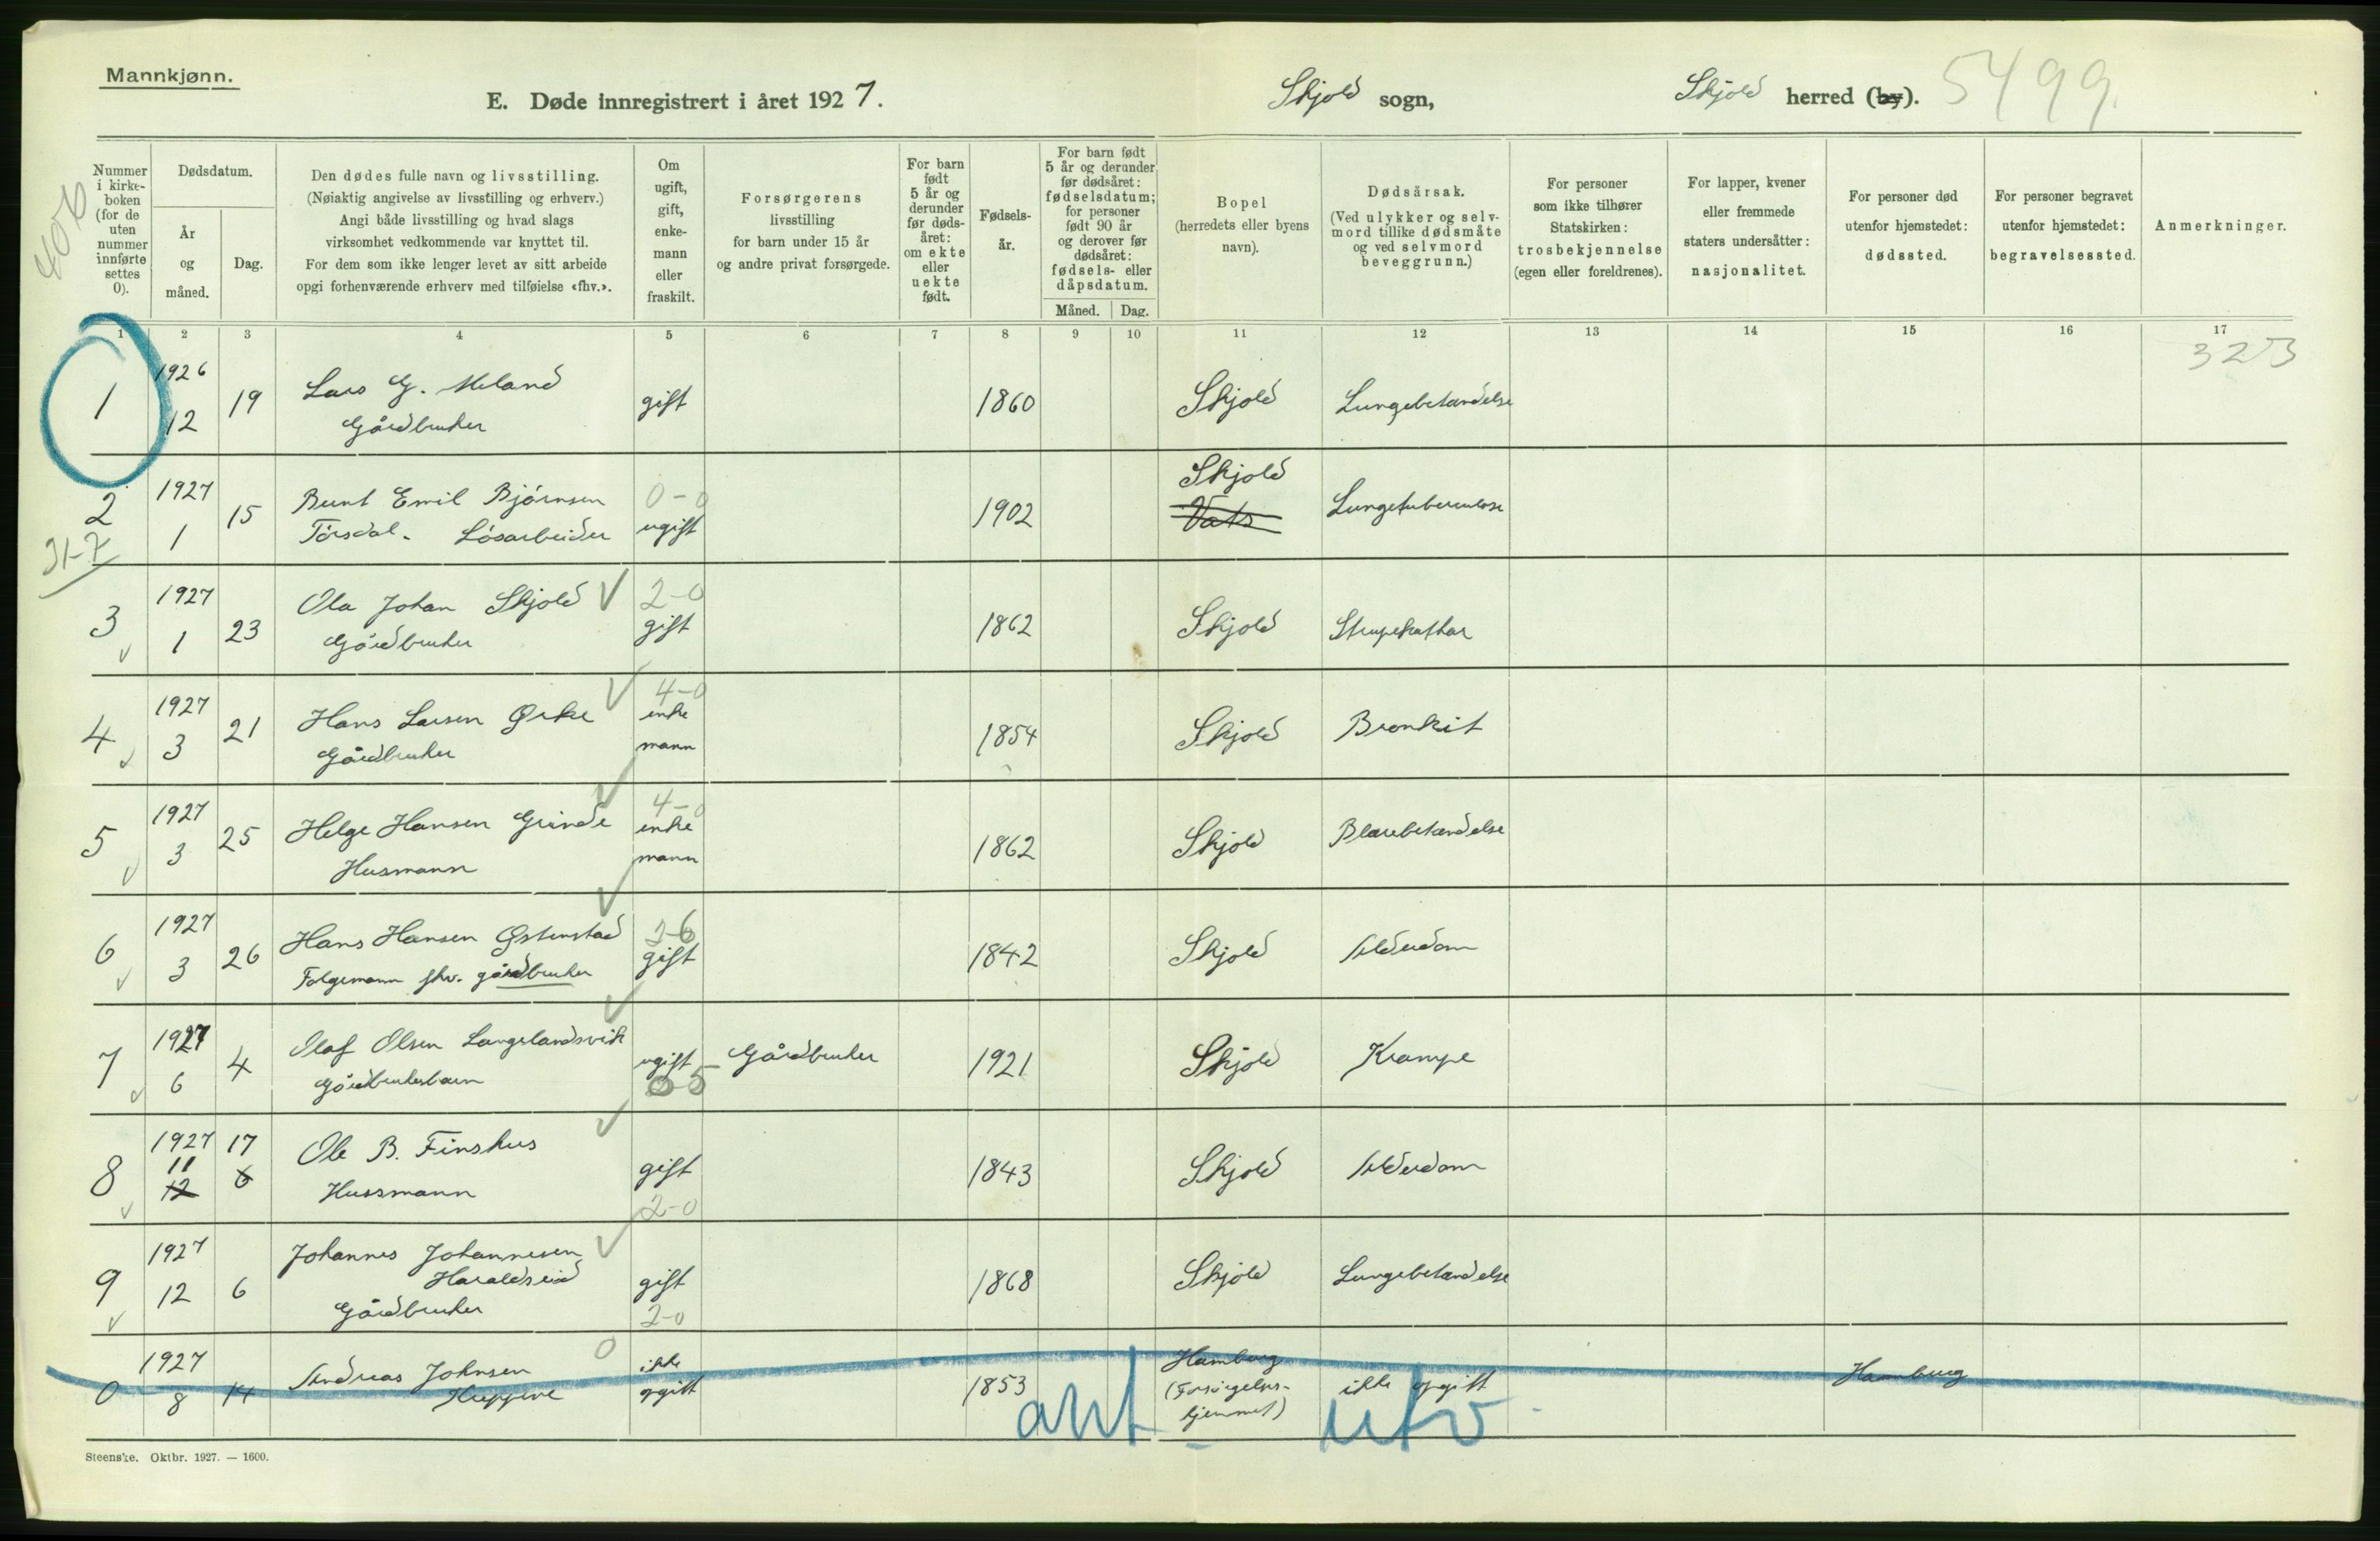 Mannkjønn.
E. Døde innregistrert i året 1927.
Skjold sogn,
Skjold herred (by).
5499.
Nummer i kirkeboken (for de uten nummer innførte settes 0).
Dødsdatum.
År og måned.
Dag.
Den dødes fulle navn og livsstilling.
(Nøiaktig angivelse av livsstilling og erhverv.)
Angi både livsstilling og hvad slags
virksomhet vedkommende var knyttet til.
For dem som ikke lenger levet av sitt arbeide
opgi forhenværende erhverv med tilføielse «fhv.».
Om ugift, gift, enkemann eller fraskilt.
Forsørgerens
livsstilling
for barn under 15 år
og andre privat forsørgede.
For barn født 5 år og derunder før dødsåret: om ekte eller uekte født.
Fødselsår.
For barn født 5 år og derunder før dødsåret: fødselsdatum; for personer født 90 år og derover før dødsåret: fødsels- eller dåpsdatum.
Måned.
Dag.
Bopel
(herredets eller byens
navn).
Dødsårsak.
(Ved ulykker og selvmord tillike dødsmåte og ved selvmord beveggrunn.)
For personer
som ikke tilhører
Statskirken:
trosbekjennelse
(egen eller foreldrenes).
For lapper, kvener
eller fremmede
staters undersåtter:
nasjonalitet.
For personer død
utenfor hjemstedet:
dødssted.
For personer begravet
utenfor hjemstedet:
begravelsessted.
Anmerkninger.
1 2 3 4 5 6 7 8 9 10 11 12 13 14 15 16 17
323
1 1926 12 19 Lars G. Meland Gårdbruker gift 1860 Skjold Lungebetændelse
2 1927 1 15 Bernt Emil Bjørnsen Tørsdal. Løsarbeider 0-0 ugift 1902 Skjold Vats Lungetuberculose
31-7
3 1927 1 23 Ola Johan Skjold Gårdbruker 2-0 gift 1862 Skjold Strupekathar
4 1927 3 21 Hans Larsen Ørke Gårdbruker 4-0 enke mann 1854 Skjold Bronkit
5 1927 3 25 Helge Hansen Grinde Husmann 4-0 enke mann 1862 Skjold Blærebetændelse
6 1927 3 26 Hans Hansen Østenstad Folgemann fhv. gårdbruker 2-6 gift 1842 Skjold Alderdom
7 1927 6 4 Olaf Olsen Langelandsvik Gårdbrukerbarn ugift 0-5 Gårdbruker 1921 Skjold Krampe
8 1927 11 12 17 6 Ole B. Finshus Hussmann gift 2-0 1843 Skjold Alderdom
9 1927 12 6 Johannes Johannesen Haraldseid Gårdbruker gift 2-0 1868 Skjold Lungebetændelse
0 1927 8 14 Andreas Johnsen 0 ikke opgitt 1853 Hamburg (Forsørgelseshjemmet) ikke opgitt Hamburg
ant utv
Steenske. Oktbr. 1927. — 1600.